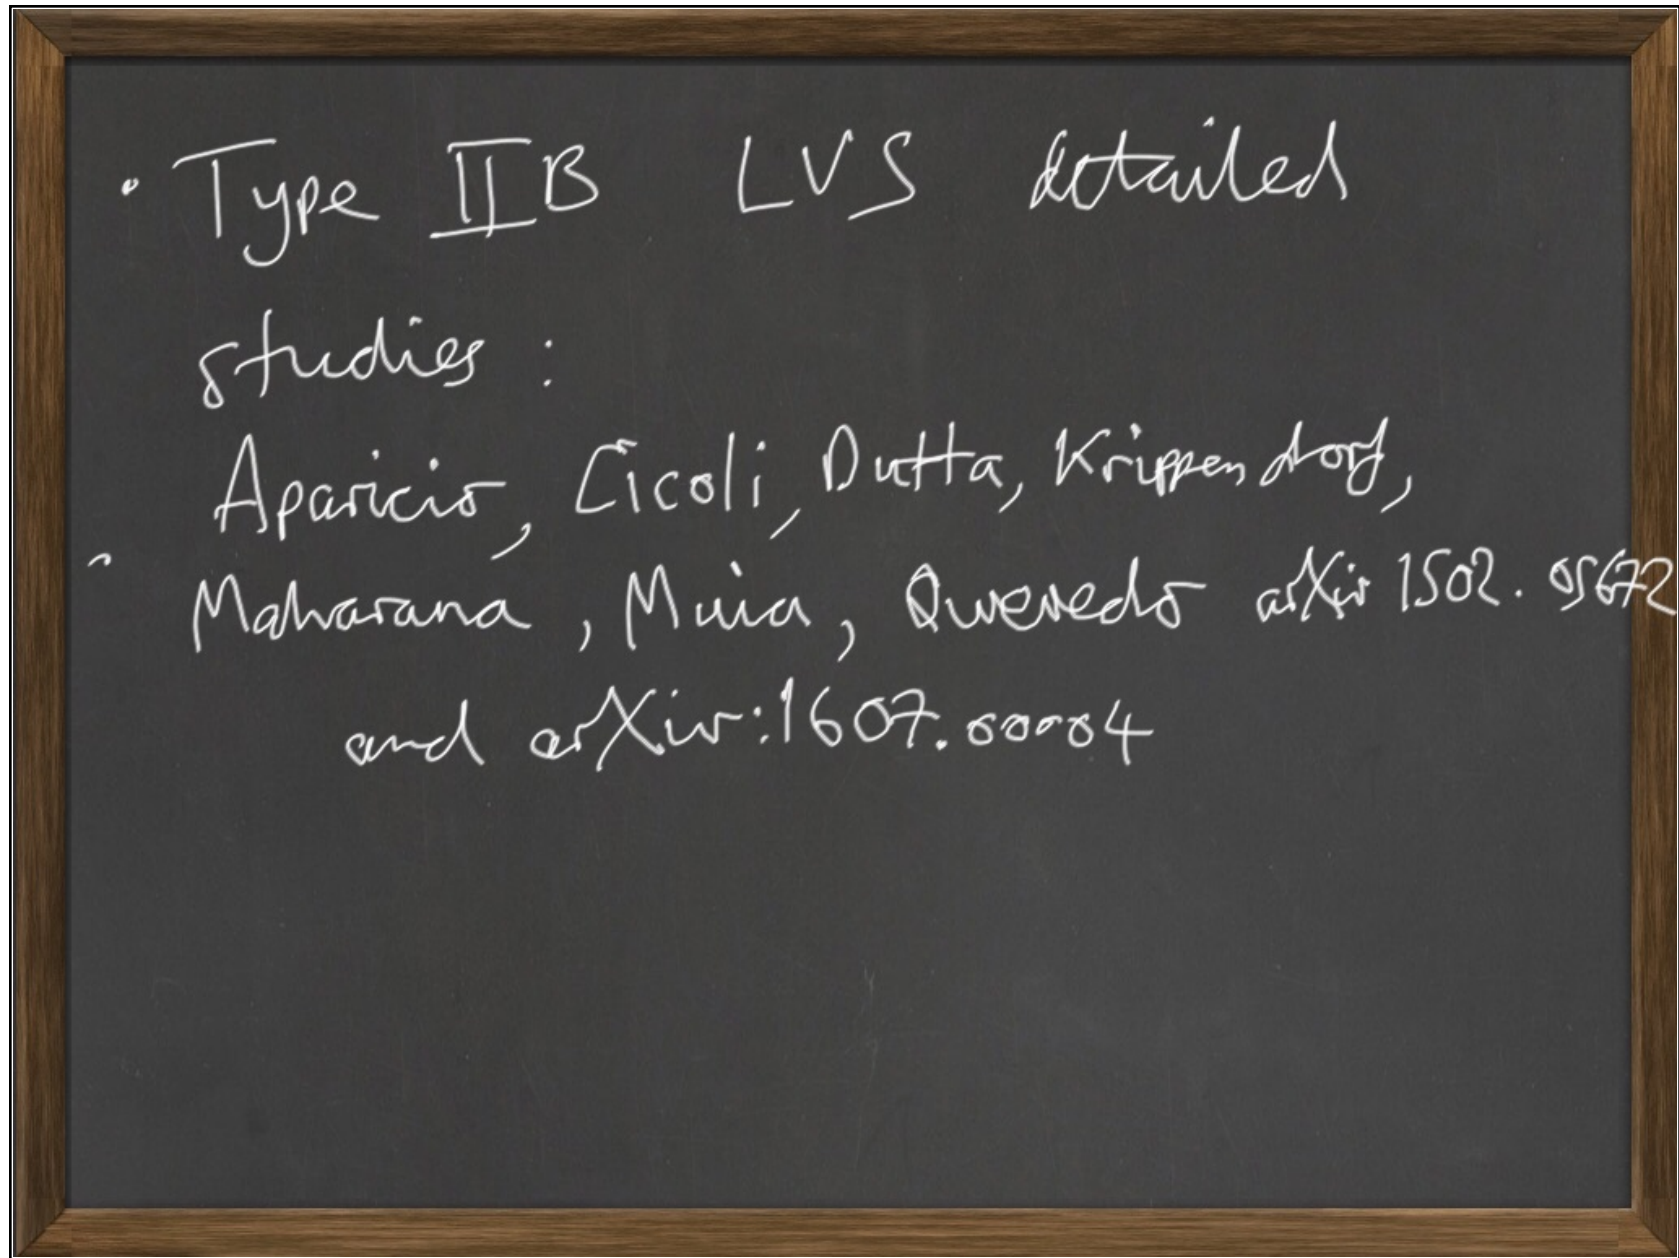 • Type IIB LVS detailed
studies :
Aparicio, Cicoli, Dutta, Krippendorf,
Maharana, Muia, Quevedo arXiv 1502.05672
and arXiv:1607.00004